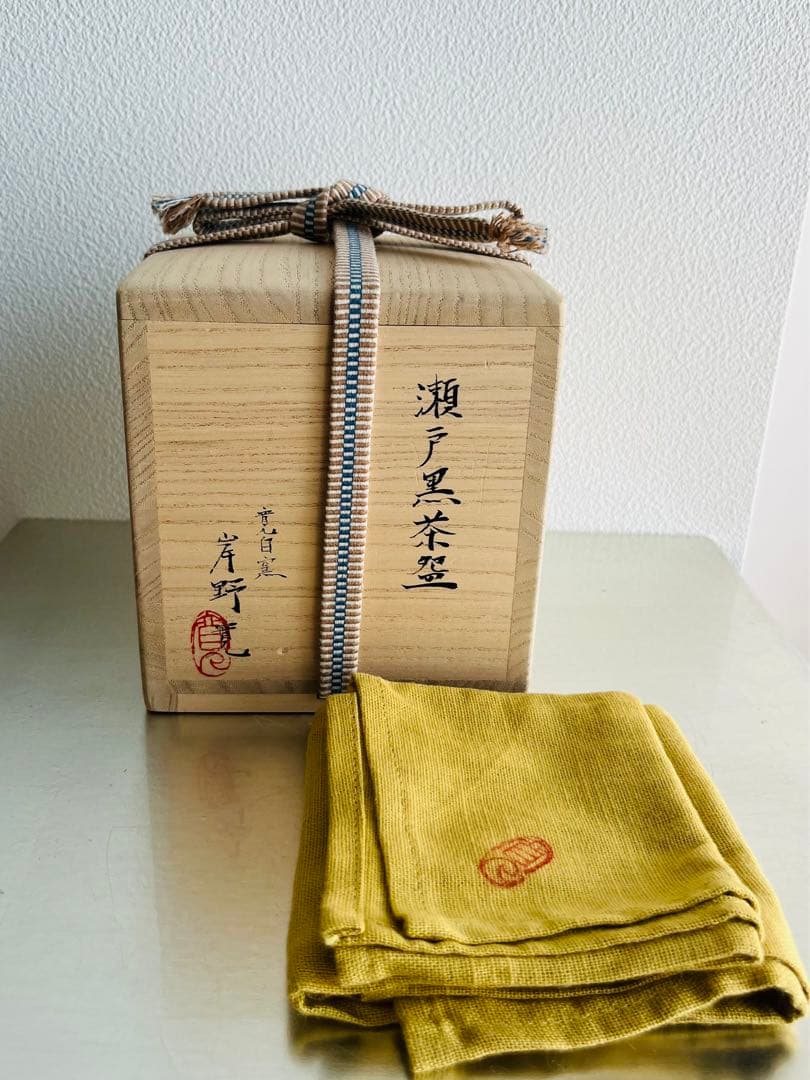 瀬戸黒茶盌
寛白窯
岸野寛